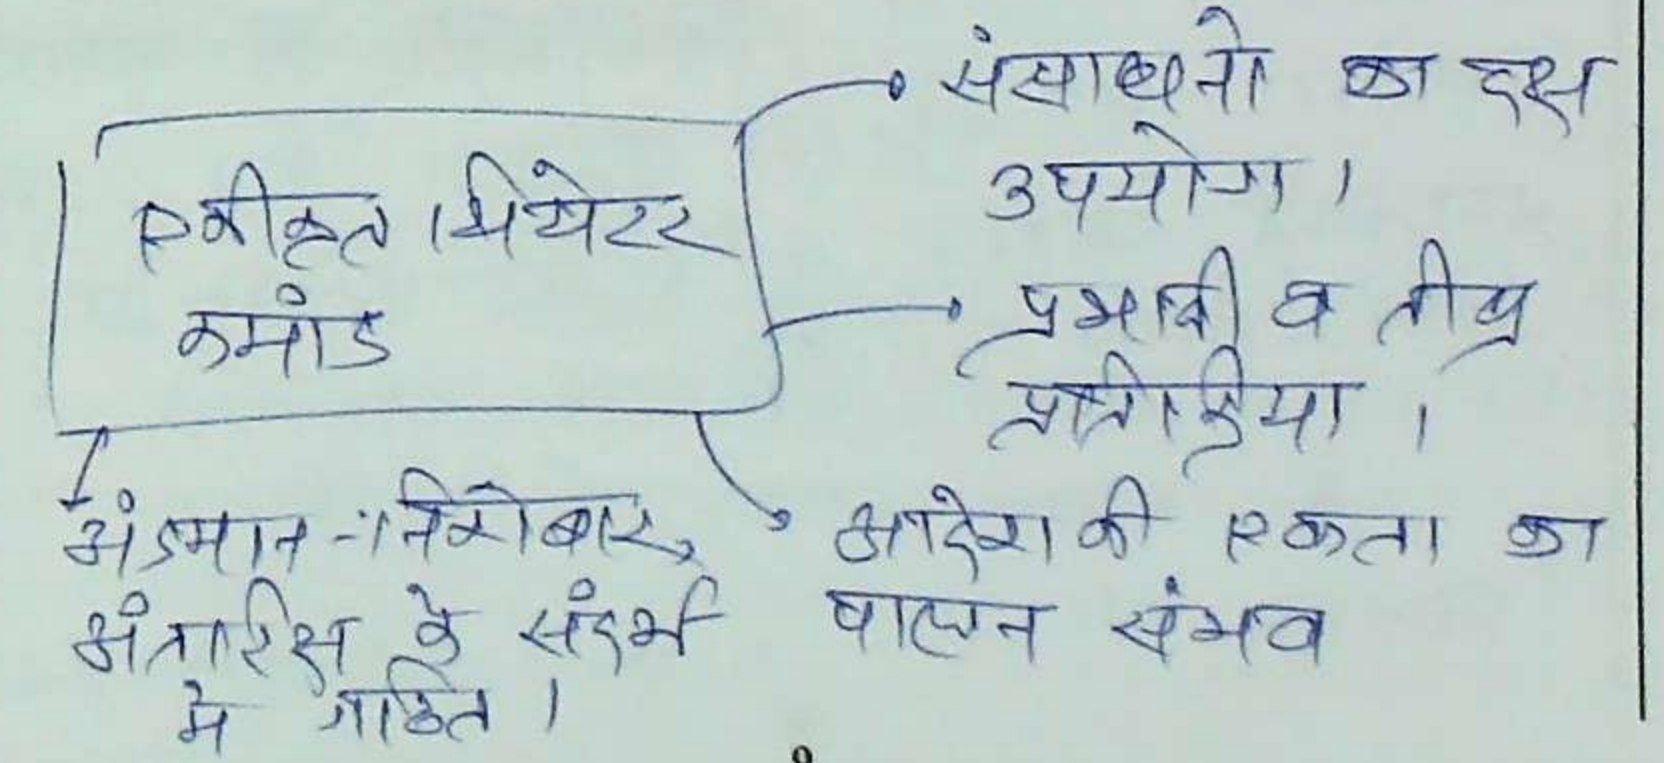 एकीकृत थियेटर
कमांड
संसाधनो का दक्ष
उपयोग।
प्रभावी व तीव्र
प्रतिक्रिया।
आदेश की एकता का
पालन संभव
अंडमान-निकोबार,
अंतरिक्ष के संदर्भ
मे गठित।